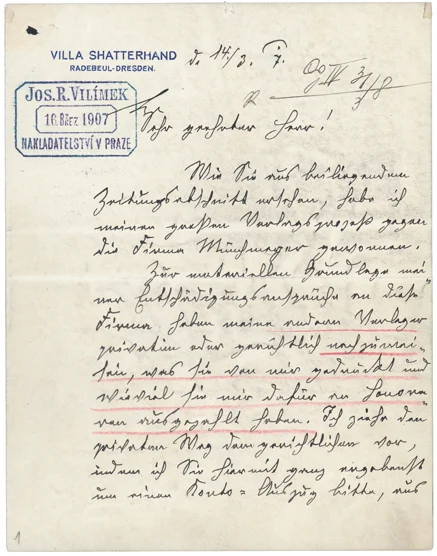 VILLA SHATTERHAND
RADEBEUL-DRESDEN.
d. 14./3. 7.
JOS. R. VILÍMEK
16. BŘEZ 1907
NAKLADATELSTVÍ V PRAZE
Sehr geehrter Herr!
Wie Sie aus beiliegendem
Zeitungsabschnitt ersehen, habe ich
meinen großen Verlagsprozeß gegen
die Firma Münchmeyer gewonnen.
Zur materiellen Grundlage mei-
ner Entschädigungsansprüche an diese
Firma haben meine andern Verleger
privatim oder gerichtlich nachzuwei-
sen, was sie von mir gedruckt und
wieviel sie mir dafür an Honora-
ren ausgezahlt haben. Ich ziehe den
privaten Weg dem gerichtlichen vor,
indem ich Sie hiermit ganz ergebenst
um einen Konto-Auszug bitte, aus
1